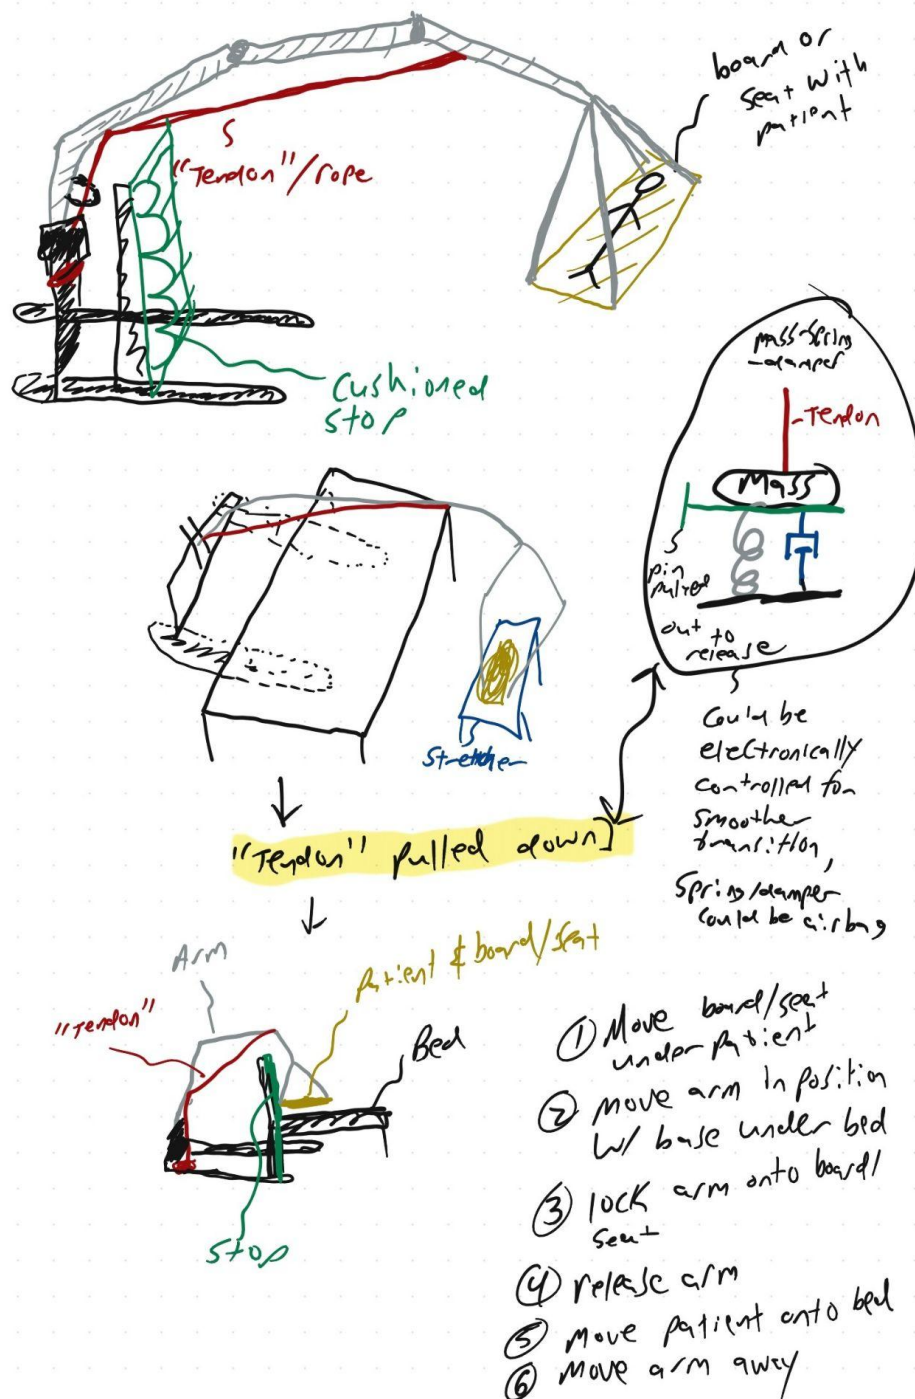 board or
seat with
patient
"Tendon"/rope
Cushioned
stop
Mass-spring
-damper
-Tendon
Mass
pin
pulled
out to
release
Could be
electronically
controlled for
smoother
transition,
spring/damper
could be airbag
stretcher
"Tendon" pulled down
Arm
Patient & board/seat
"Tendon"
Bed
Stop
① Move board/seat
under patient
② move arm in position
w/ base under bed
③ lock arm onto board/
seat
④ release arm
⑤ move patient onto bed
⑥ move arm away